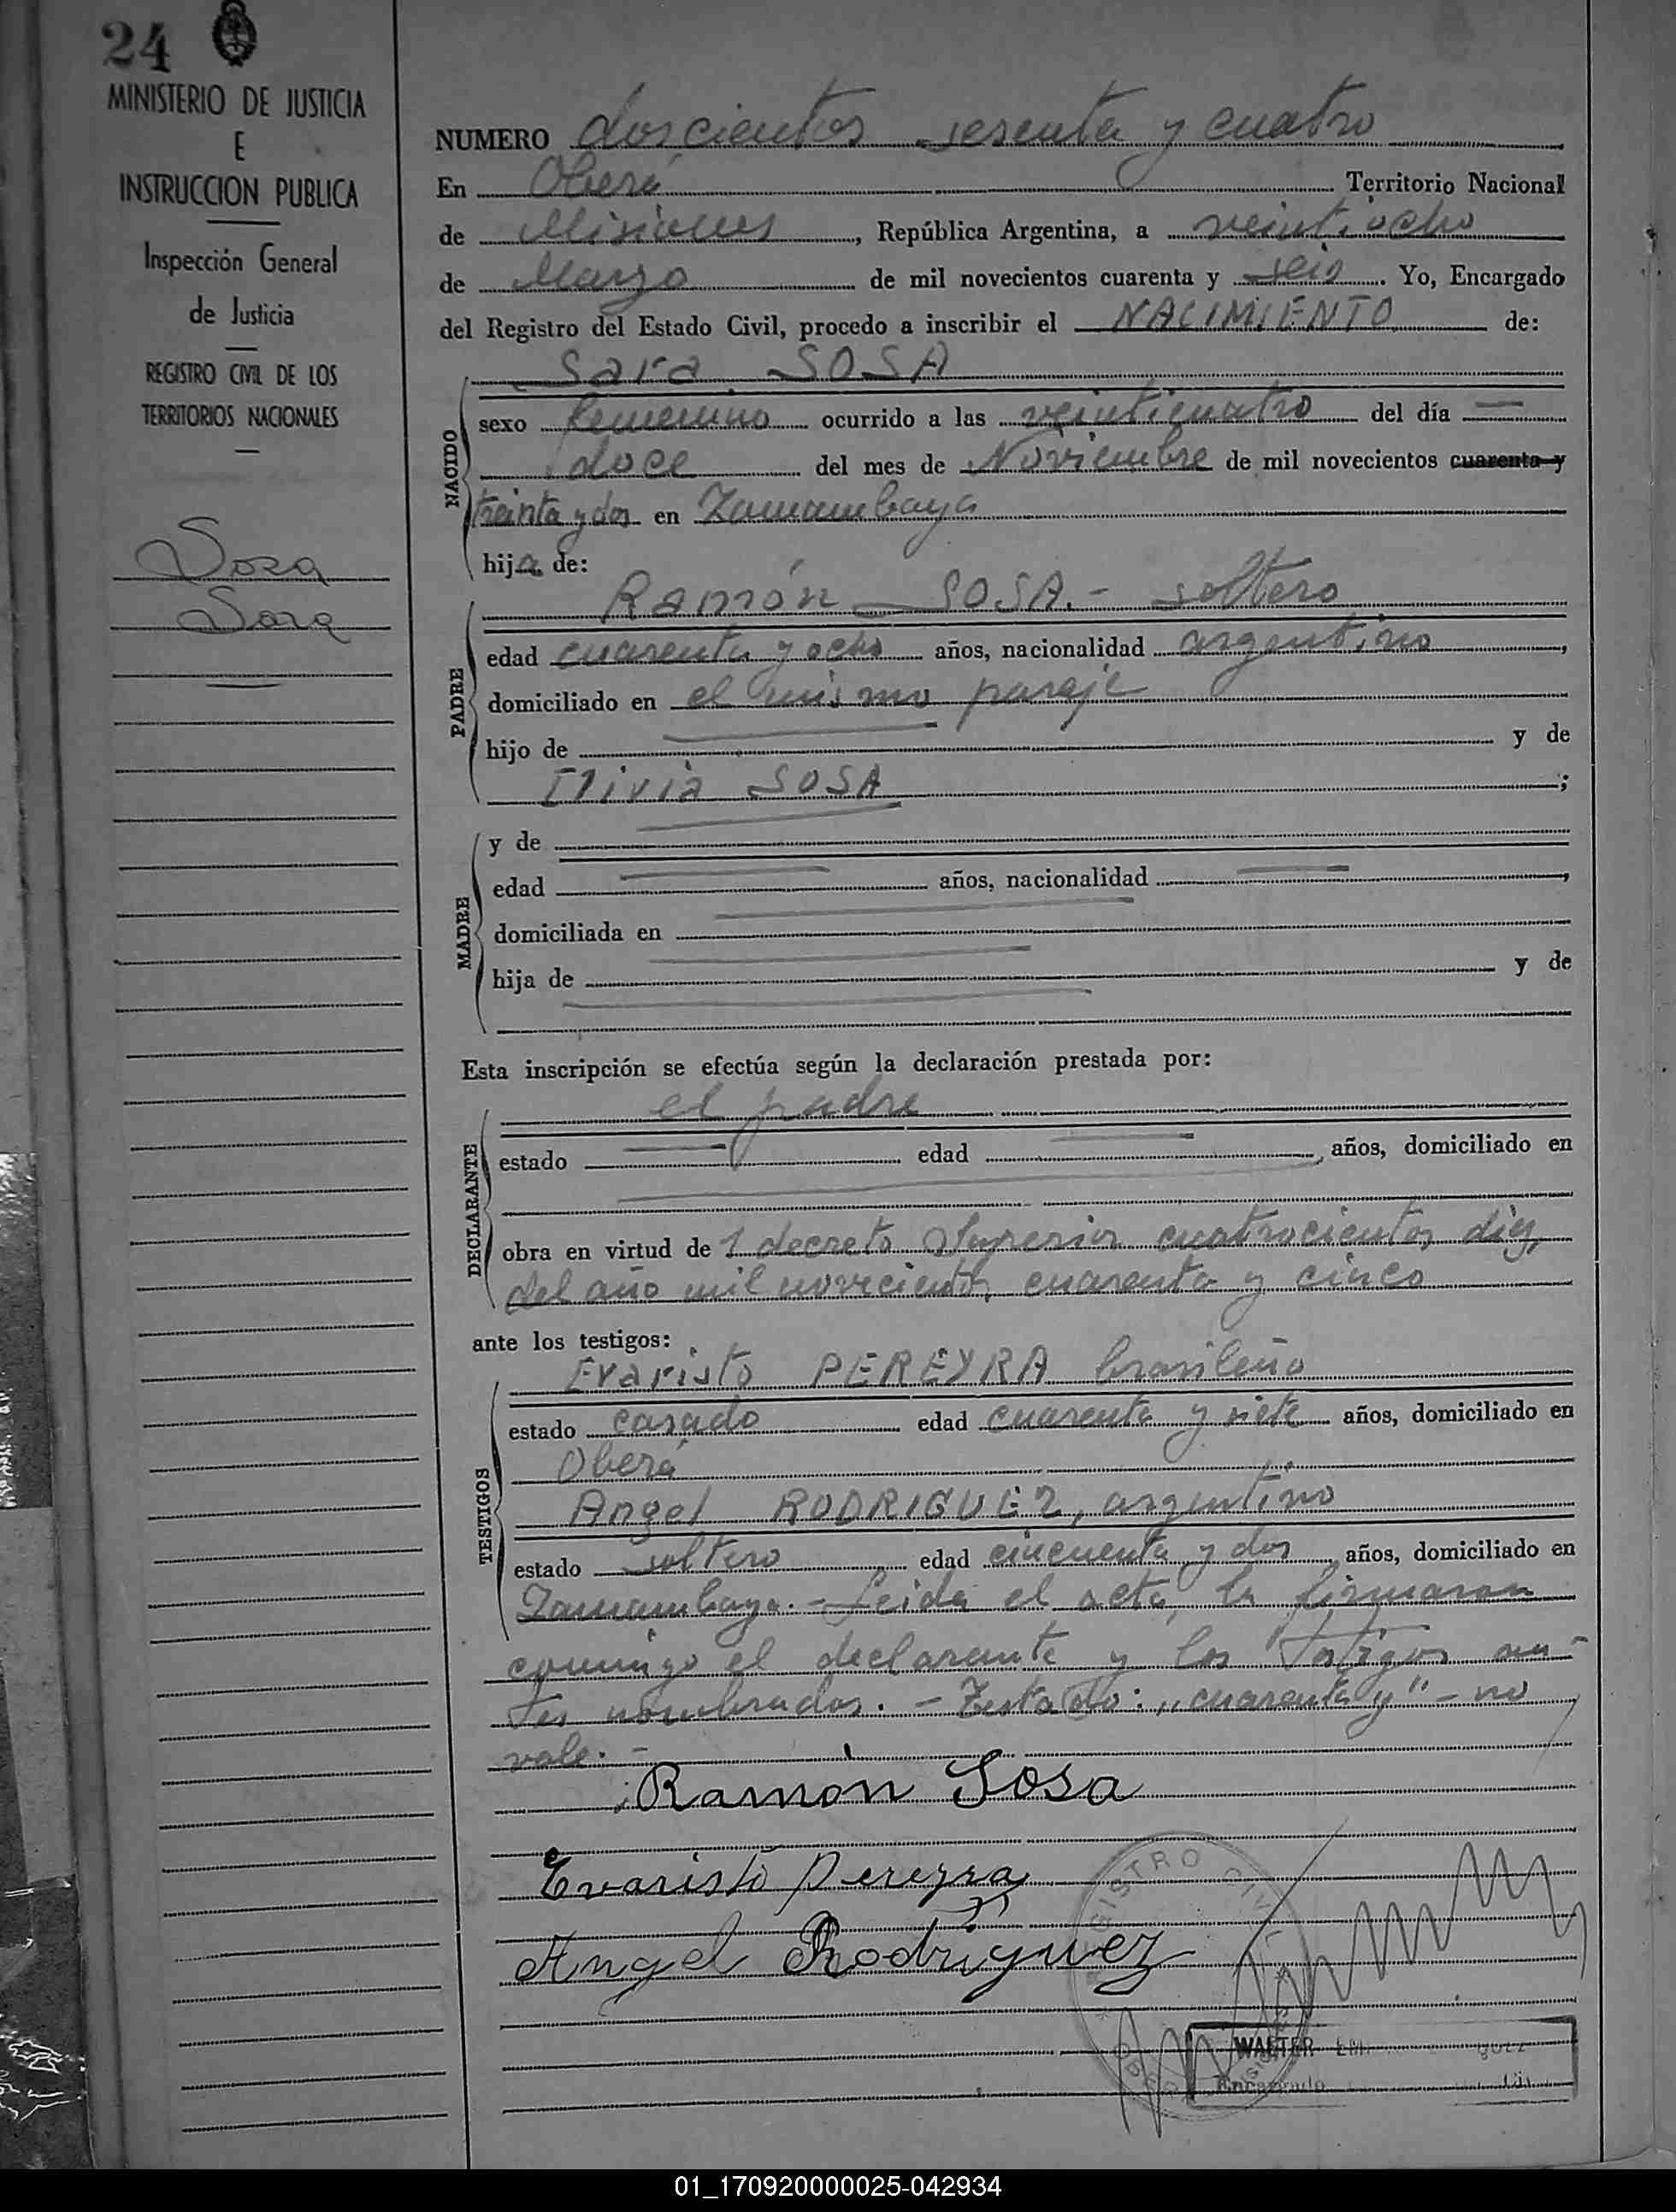 24
MINISTERIO DE JUSTICIA
E
INSTRUCCION PUBLICA
Inspección General
de Justicia
REGISTRO CIVIL DE LOS
TERRITORIOS NACIONALES
Sosa
Sara
NUMERO doscientos sesenta y cuatro
En Oberá Territorio Nacional
de Misiones, República Argentina, a veintiocho
de Marzo de mil novecientos cuarenta y seis. Yo, Encargado
del Registro del Estado Civil, procedo a inscribir el NACIMIENTO de:
Sara SOSA
NACIDO
sexo femenino ocurrido a las veinticuatro del día —
doce del mes de Noviembre de mil novecientos cuarenta y
treinta y dos en Zamambaya
hija de:
Ramón SOSA.- soltero
PADRE
edad cuarenta y ocho años, nacionalidad argentino,
domiciliado en el mismo paraje
hijo de y de
SOSA;
MADRE
y de
edad años, nacionalidad,
domiciliada en
hija de y de
Esta inscripción se efectúa según la declaración prestada por:
el padre
DECLARANTE
estado edad, años, domiciliado en
obra en virtud de decreto Superior cuatrocientos diez,
del año mil novecientos cuarenta y cinco
ante los testigos:
Evaristo PEREYRA brasileño
TESTIGOS
estado casado edad cuarenta y siete años, domiciliado en
Oberá
Angel RODRIGUEZ, argentino
estado soltero edad cincuenta y dos años, domiciliado en
Zamambaya.- Leida el acta, la firmaron
conmigo el declarante y los testigos an-
tes nombrados.- Testado: "cuarenta y" - no
vale.-
Ramón Sosa
Evaristo Pereyra
Angel Rodriguez
REGISTRO CIVIL
WALTER
Encargado
01_170920000025-042934